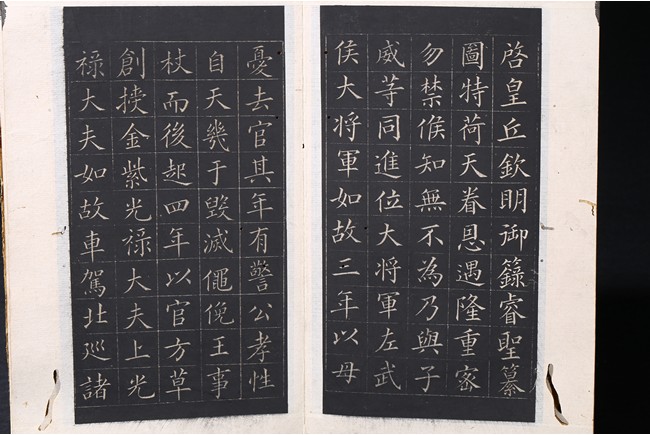 啓皇丘欽明御籙睿聖纂
圖特荷天眷恩遇隆重家
勿禁候知無不為乃與子
威等同進位大將軍左武
侯大將軍如故三年以母
憂去官其年有警公孝性
自天幾于毀滅僶俛王事
杖而後起四年以官方草
創授金紫光祿大夫上光
祿大夫如故車駕北巡諸